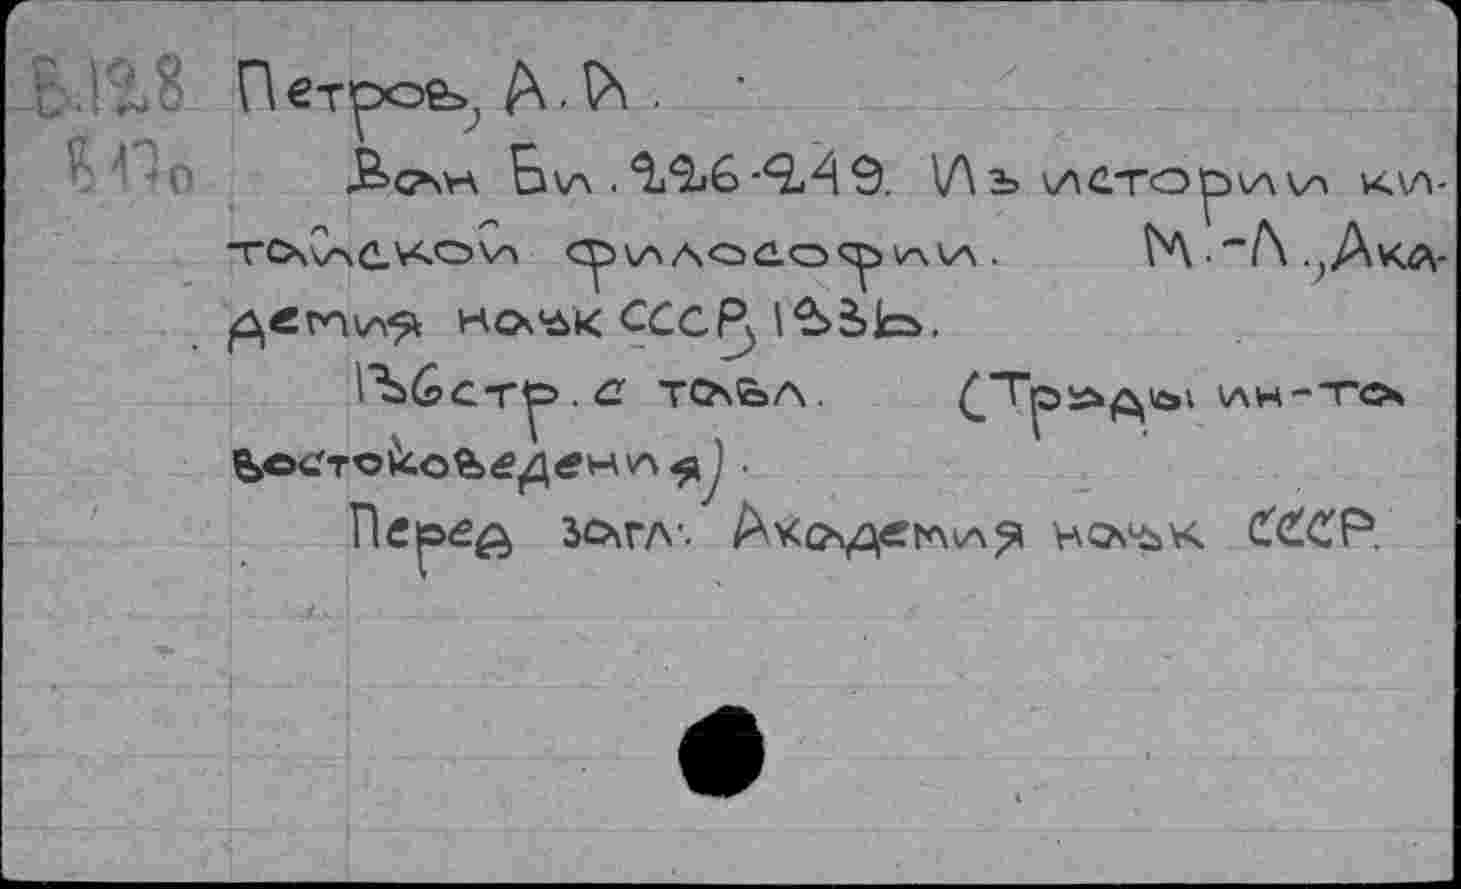 В.128 Петров, А. А.
В 17о Ван Би. 226-249. Из истории ки-
тайской философии. М.-Л., Ака-
демия наук СССР, 1936.
136 стр. с табл. (Труды ин-та
востоковедения).
Перед загл.: Академия наук СССР.